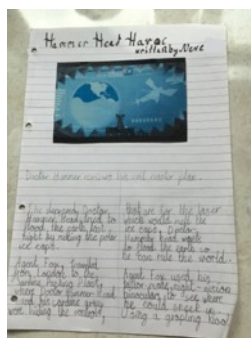 Hammer Head Havoc
written by Neve
Doctor Hammer reviews his evil master plan.
The dastardly Doctor
Hammer Head, tried to
flood the earth last
night by melting the polar
ice caps.
Agent Fox, travelled
from London to the
Sardine Packing Plant,
where Doctor Hammer Head
and his sardine group
were hiding the
that are for the laser
which would melt the
ice caps. Doctor
Hammer Head wants
to flood the earth so
he can rule the world.
Agent Fox used his
night-vision
binoculars to see where
he could
Using a grappling hook